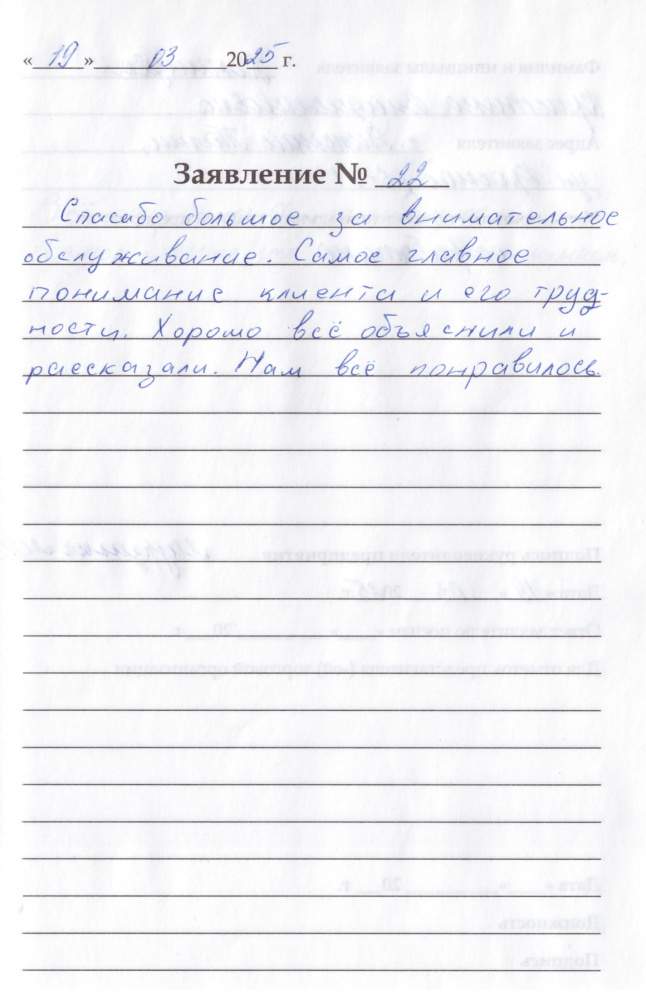 «19» 03 2025 г.
Заявление № 22
Спасибо большое за внимательное
обслуживание. Самое главное
понимание клиента и его труд-
ности. Хорошо всё объяснили и
рассказали. Нам всё понравилось.